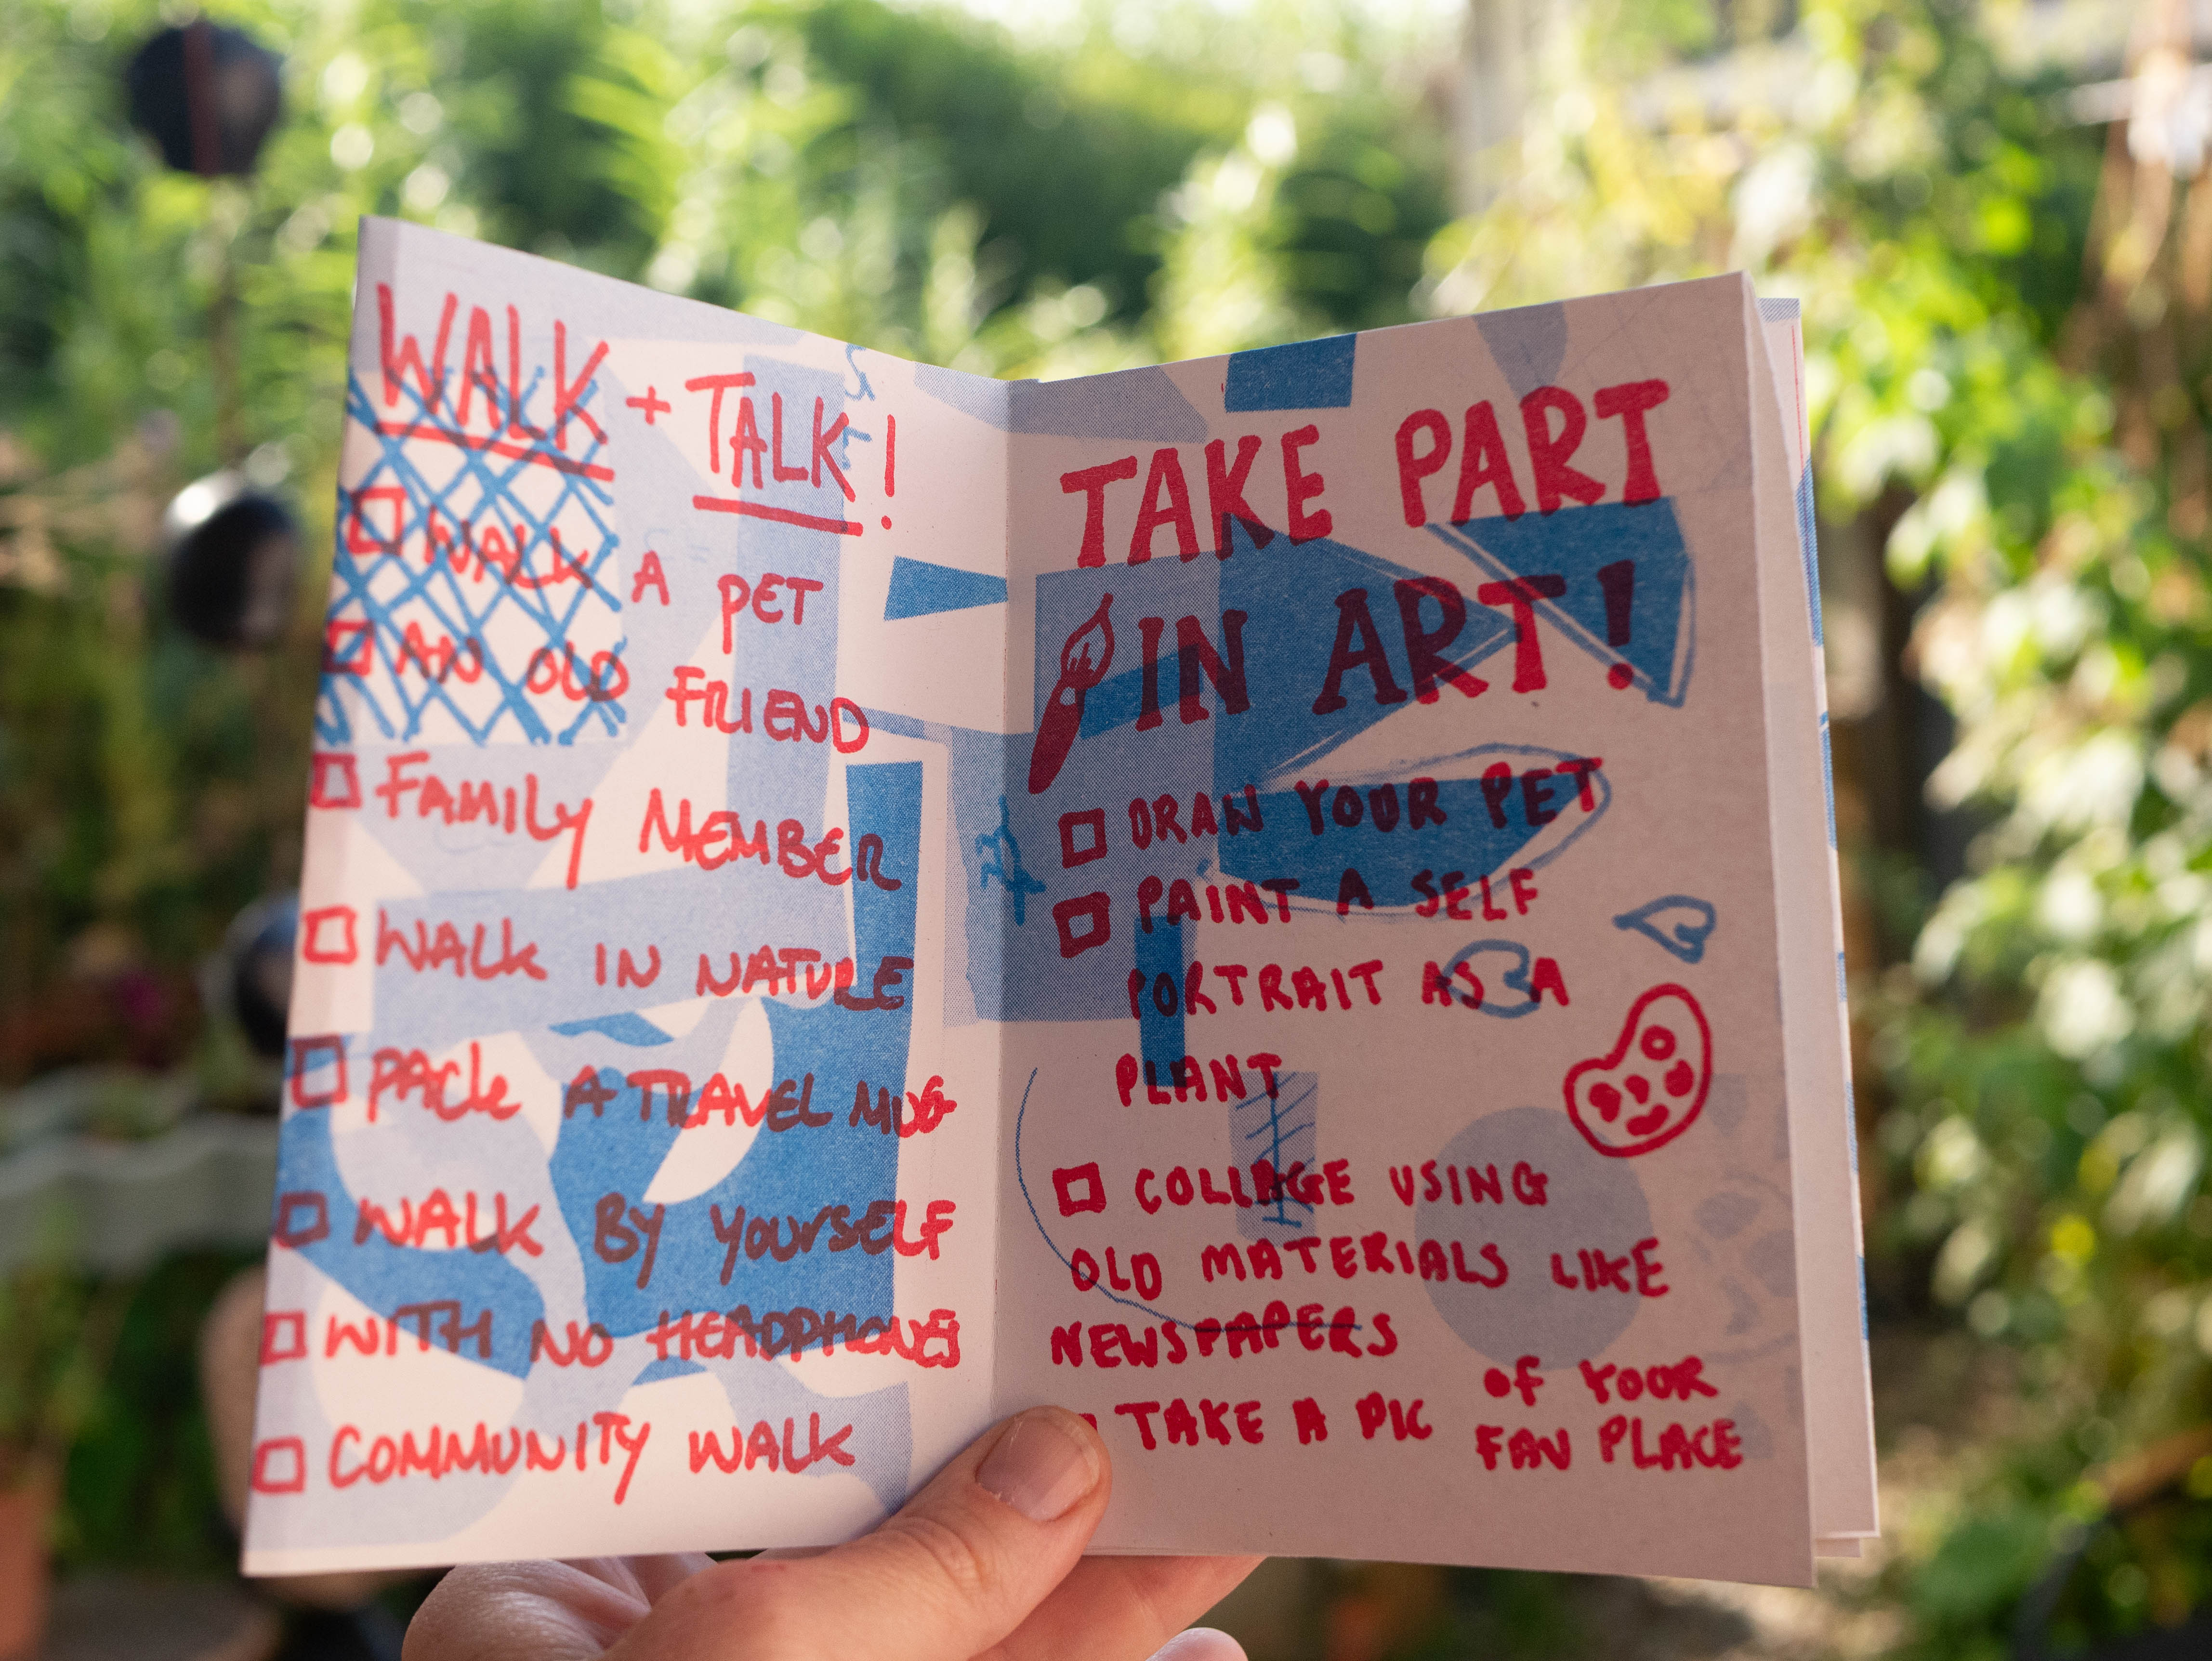 WALK + TALK!
WALK A PET
AN OLD FRIEND
FAMILY MEMBER
WALK IN NATURE
PACK A TRAVEL MUG
WALK BY YOURSELF
WITH NO HEADPHONES
COMMUNITY WALK
TAKE PART
IN ART!
DRAW YOUR PET
PAINT A SELF
PORTRAIT AS A
PLANT
COLLAGE USING
OLD MATERIALS LIKE
NEWSPAPERS
TAKE A PIC OF YOUR
FAV PLACE